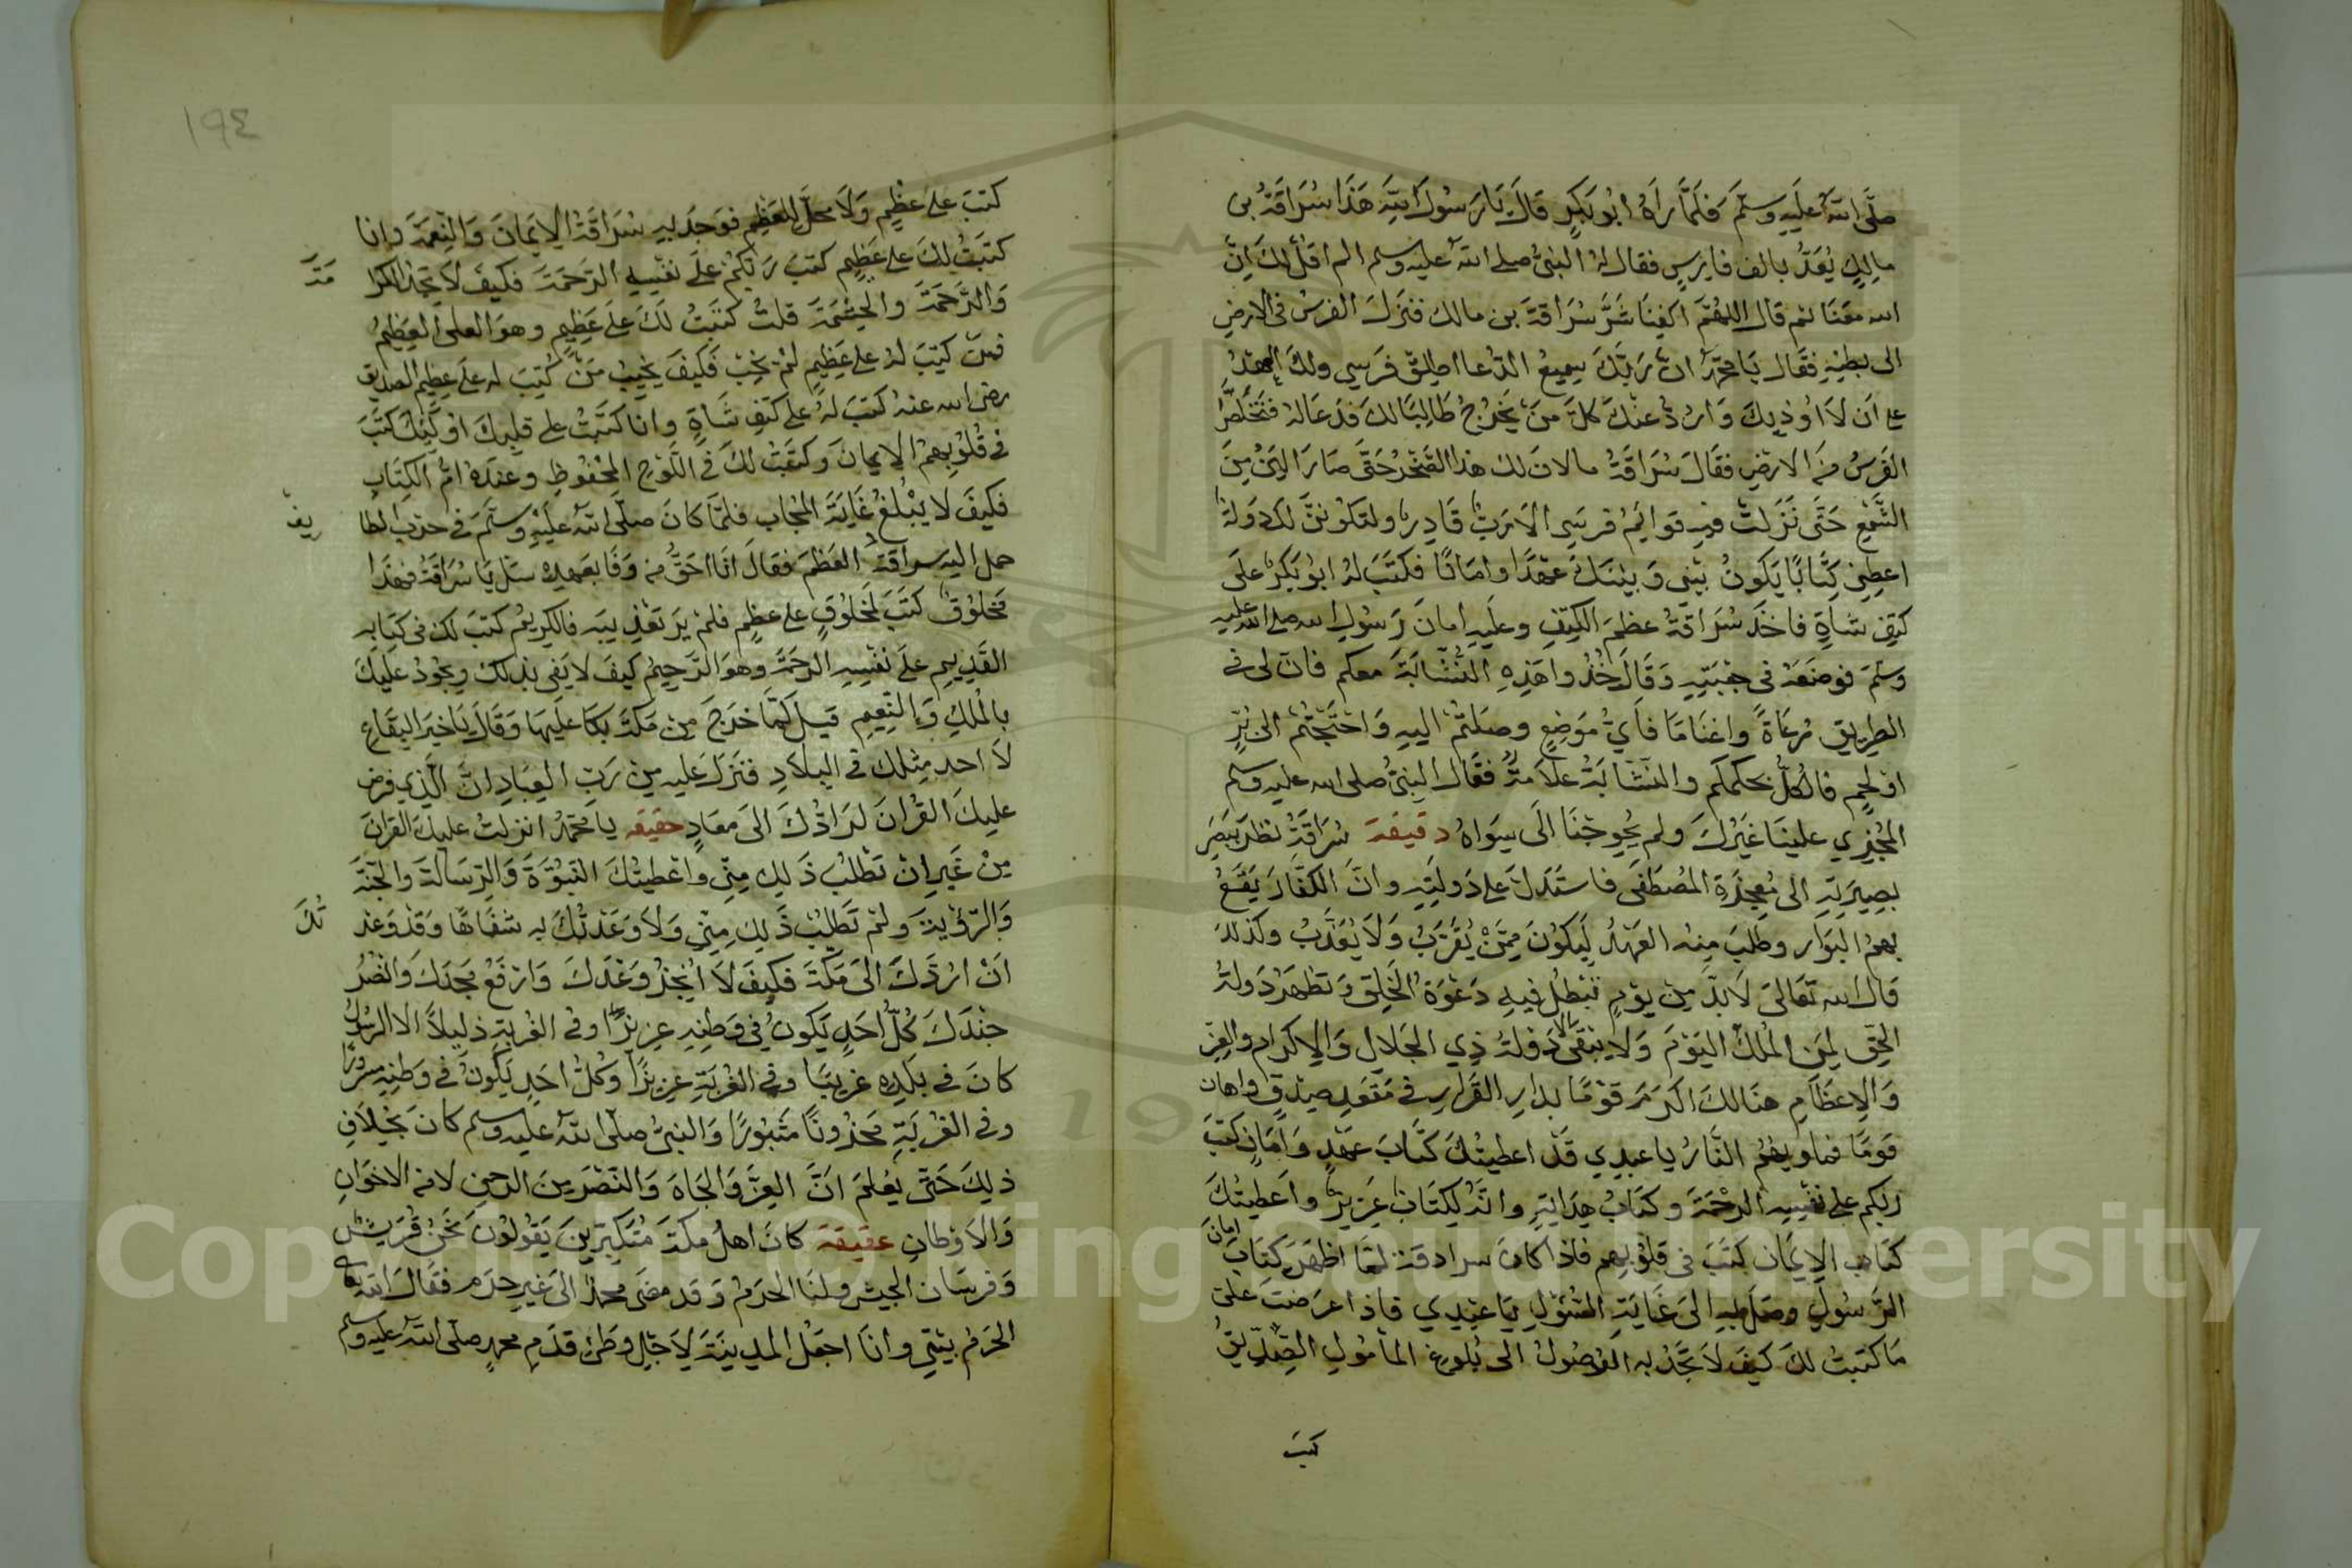 صلى الله عليه وسلم فلما رآه ابو بكر قال يا رسول الله هذا سراقة بن
مالك يعد بالف فارس فقال له النبى صلى الله عليه وسلم الم اقل لك ان
الله معنا ثم قال اللهم اكفنا شر سراقة بن مالك فنزل الفرس فى الارض
الى بطنه فقال يا محمد ان ربك سميع الدعا اطلق فرسى ولك العهد
على ان لا اوذيك وارد عنك كل من يخرج طالبا لك فدعا له فتخلص
الفرس من الارض فقال سراقة ما لان لك هذا الصخر حتى صار الين من
الشمع حتى نزلت فيه قوائم فرسى الا مرب قادر ولتكونن لك دولة
اعطنى كتابا يكون بينى وبينك عهدا وامانا فكتب له ابو بكر على
كتف شاة فاخذ سراقة عظم الكتف وعليه امان رسول الله صلى الله عليه
وسلم فوضعه فى جعبته وقال خذوا هذه النشابة معكم فان لى فى
الطريق مرعاة واغناما فاى موضع وصلتم اليه واحتجتم الى بر
او لحم فالكل بحكمكم والنشابة علامة فقال النبى صلى الله عليه وسلم
المجزي علينا غيرك ولم يحوجنا الى سواه دقيقة سراقة نظر ببصر
بصيرته الى معجزة المصطفى فاستدل على دولته وان الكفار يقع
بهم البوار وطلب منه العهد ليكون ممن يقرب ولا يعذب وكذلك
قال الله تعالى لا بد من يوم تبطل فيه دعوة الخلق وتظهر دولة
الحق لمن الملك اليوم ولا يبقى الا دولة ذي الجلال والاكرام والعز
والاعظام هنالك اكرم قوما بدار القرار فى مقعد صدق واهان
قوما فماويهم النار يا عبدي قد اعطيتك كتاب عهد وامان كتب
ربكم على نفسه الرحمة وكتاب هداية وانه لكتاب عزيز واعطيتك
كتاب الايمان كتب فى قلوبهم فاذا كان سراقة لما اظهر كتاب امان
الرسول وصل به الى غاية السؤل يا عبدي فاذا عرضت على
ما كتبت لك كيف لا تجد به الوصول الى بلوغ المأمول الصديق
كتب
١٩٤
كتب على عظم ولا محل للعظم فوجد به سراقة الايمان والنعمة وانا
كتبت لك على عظيم كتب ربكم على نفسه الرحمة فكيف لا تجد الكرا مة
والرحمة والحشمة قلت كتبت لك على عظيم وهو العلى العظيم
فمن كتب له على عظم لم يخب فكيف يخيب من كتب له على عظيم الصديق
رضى الله عنه كتب له على كتف شاة وانا كتبت على قلبك اولئك كتب
فى قلوبهم الايمان وكتبت لك فى اللوح المحفوظ وعنده ام الكتاب
فكيف لا يبلغ غاية المحاب فلما كان صلى الله عليه وسلم فى حرب الطا يف
حمل اليه سراقة العظم فقال انا احق من وفا بعهده سل يا سراقة فهذا
مخلوق كتب لمخلوق على عظم فلم ير تعذيبه فالكريم كتب لك فى كتابه
القديم على نفسه الرحمة وهو الرحيم كيف لا يفى بذلك ويجود عليك
بالملك والنعيم قيل لما خرج من مكة بكا عليها وقال يا خير البقاع
لا احد مثلك فى البلاد فنزل عليه من رب العباد ان الذي فرض
عليك القران لرادك الى معاد حقيقه يا محمد انزلت عليك القران
من غير ان تطلب ذلك منى واعطيتك النبوة والرسالة والجنة
والرؤية ولم تطلب ذلك منى ولا وعدتك به شفاها وقد وعد تك
ان اردك الى مكة فكيف لا انجز وعدك وارفع مجدك وانصر
جندك كل احد يكون فى وطنه عزيزا وفى الغربة ذليلا الا الرسول
كان فى بلده غريبا وفى الغربة عزيزا وكل احد يكون فى وطنه مسرورا
وفى الغربة محزونا مثبورا والنبى صلى الله عليه وسلم كان بخلاف
ذلك حتى يعلم ان العز والجاه والنصر من الرحمن لا من الاخوان
والاوطان عقيقة كان اهل مكة متكبرين يقولون نحن قريش
وفرسان الجيش ولنا الحرم وقد مضى محمد الى غير حرم فقال الله تعالى
الحرم بيتى وانا اجعل المدينة لاجل وطئ قدم محمد صلى الله عليه وسلم